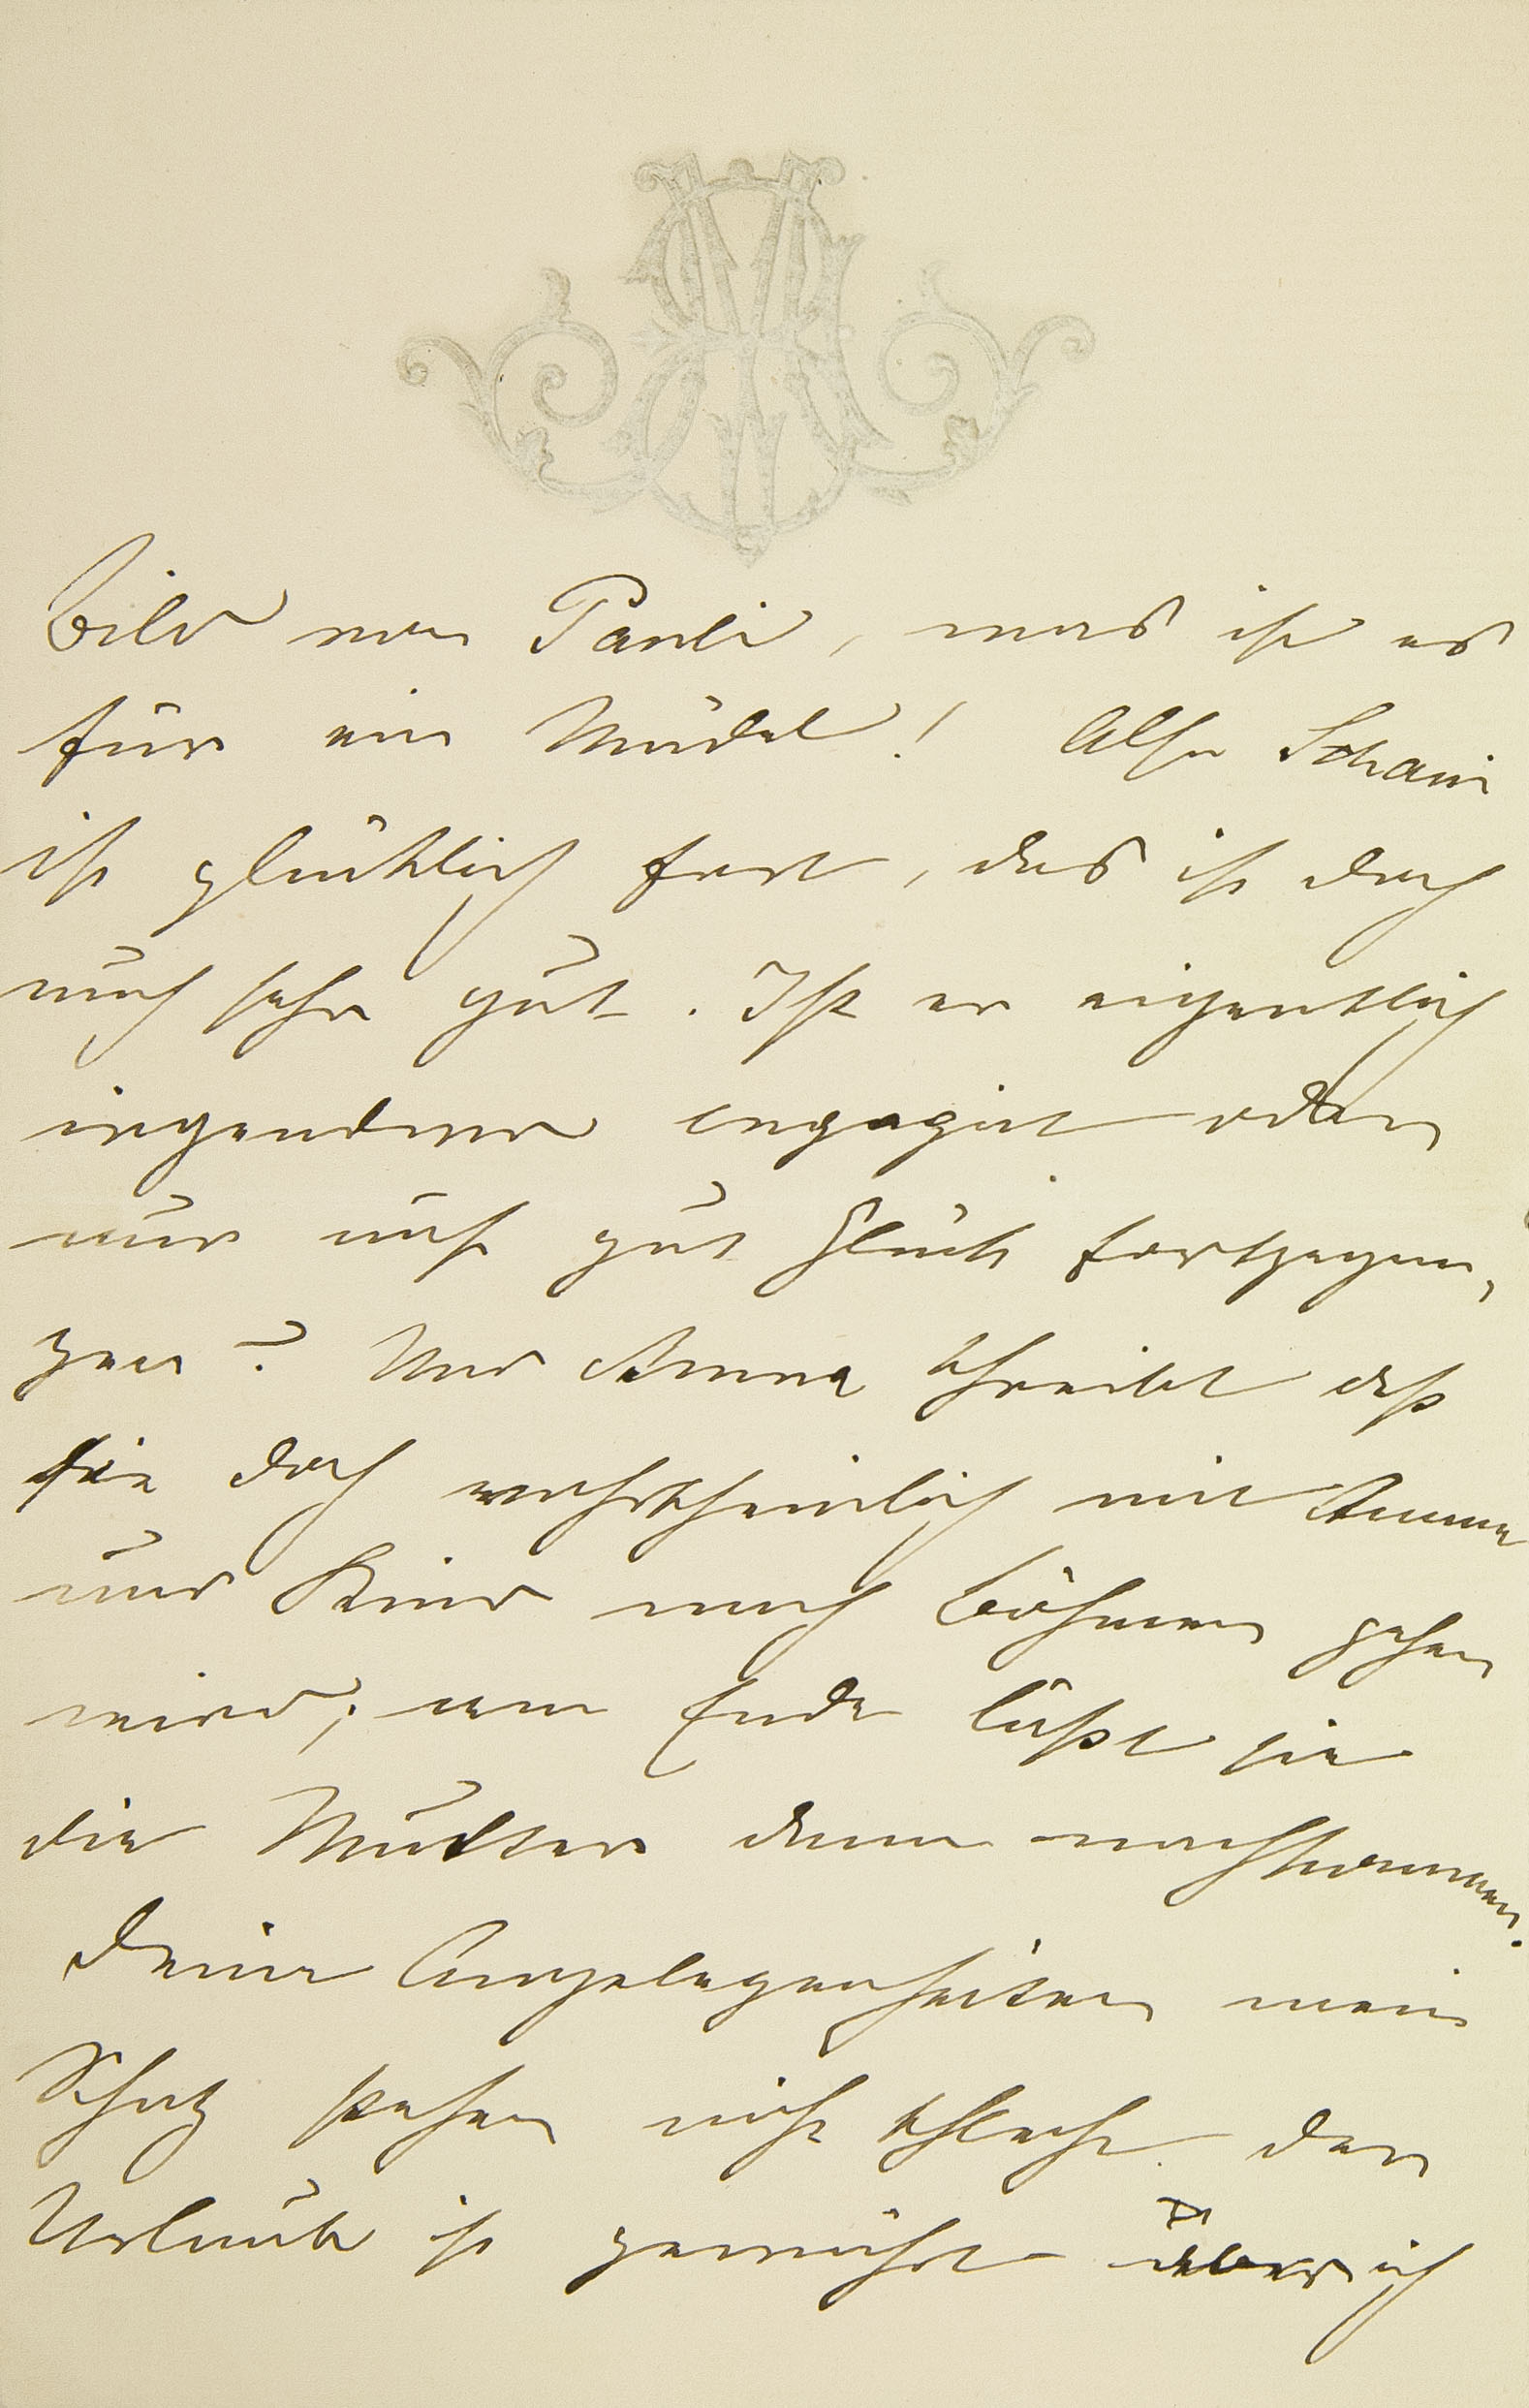 Bild von Pauli, was ist es
für ein Mädel! Also Schani
ist glücklich fort, das ist doch
auch sehr gut. Ist er eigentlich
irgendwo engagirt oder
nur auf gut Glück fortgegan¬
gen? Und Anna schreibt daß
sie doch wahrscheinlich mit Amme
und Kind nach Böhmen gehen
wird; am Ende läßt sie
die Mutter dann nachkommen.
Deine Angelegenheiten mein
Schatz stehen nicht schlecht. der
Urlaub ist gewährt ich